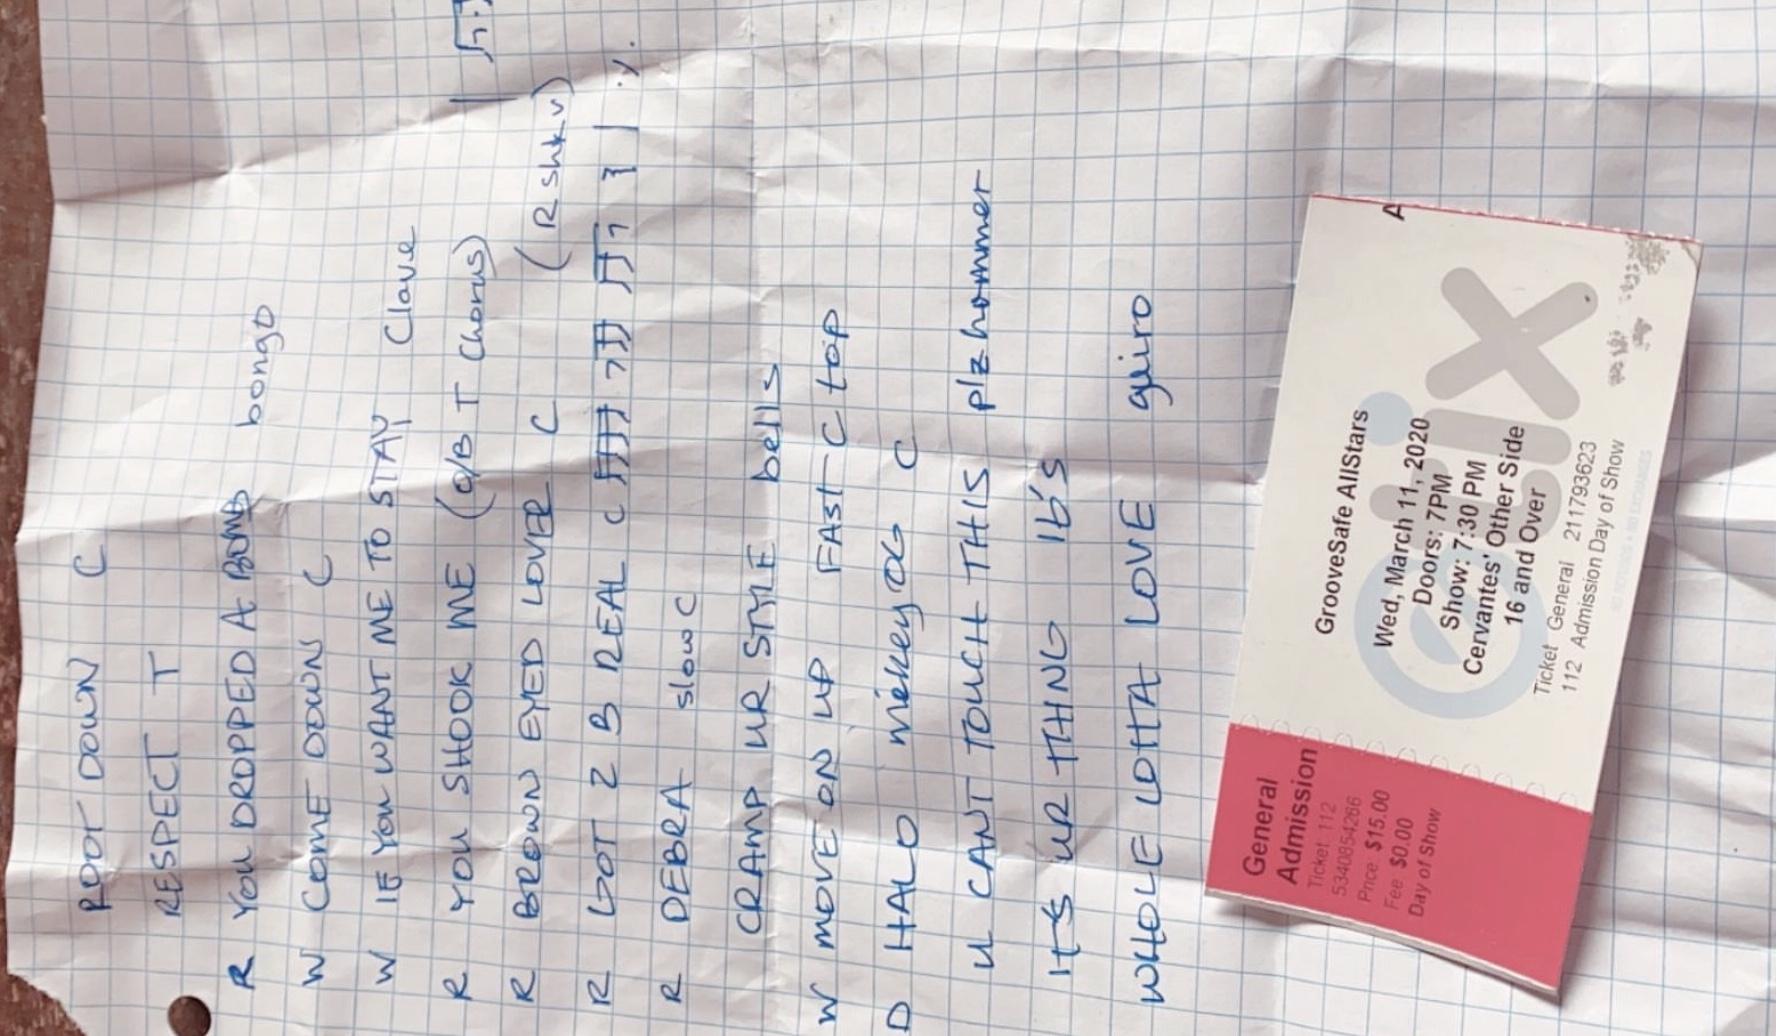 ROOT DOWN C
RESPECT T
R YOU DROPPED A BOMB bongo
W COME DOWN C
W IF YOU WANT ME TO STAY Clave
R YOU SHOOK ME (o/B T Chorus)
R BROWN EYED LOVER C (R Shkv)
R GOT 2 B REAL C
R DEBRA slow C
CRAMP UR STYLE bells
W MOVE ON UP FAST C top
D HALO mickey OG C
U CANT TOUCH THIS plz hammer
ITS UR THING 16's
WHOLE LOTTA LOVE guiro
General
Admission
Ticket 112
5340854266
Price $15.00
Fee $0.00
Day of Show
etix
A
GrooveSafe AllStars
Wed, March 11, 2020
Doors: 7PM
Show: 7:30 PM
Cervantes' Other Side
16 and Over
Ticket General 2117793623
112 Admission Day of Show
NO REFUNDS • NO EXCHANGES